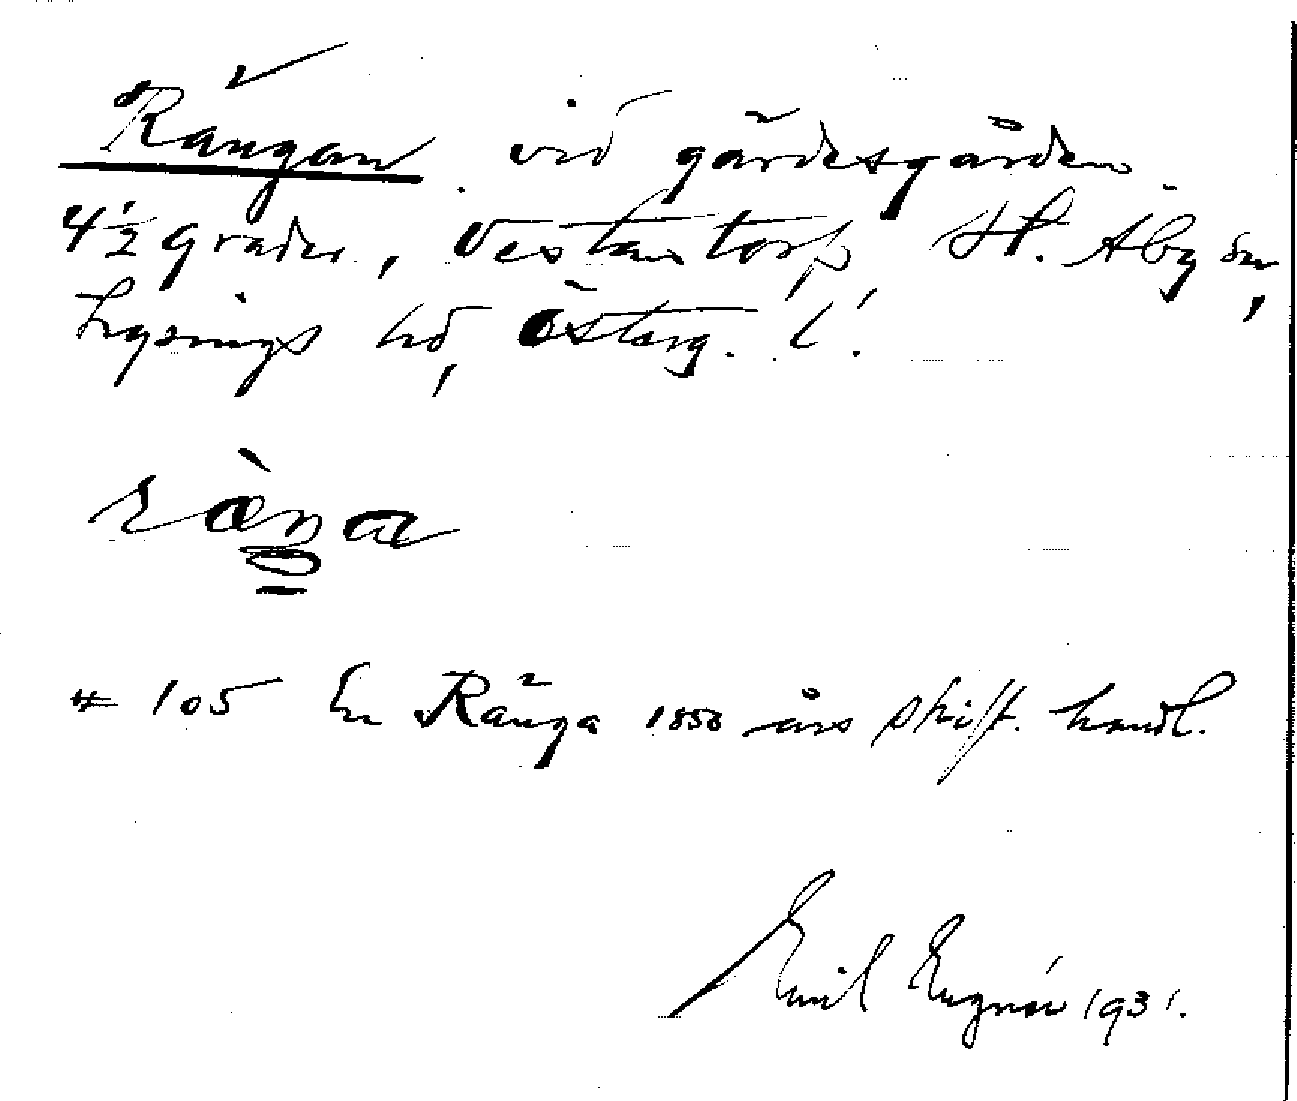 Rängan vid gärdesgården
4½ grader, Vestantorp St. Åby sn,
Lysings hd, Österg. l.
ræŋa
# 105 En Ränga 1850 års skift. handl.
Emil Engnér 1931.